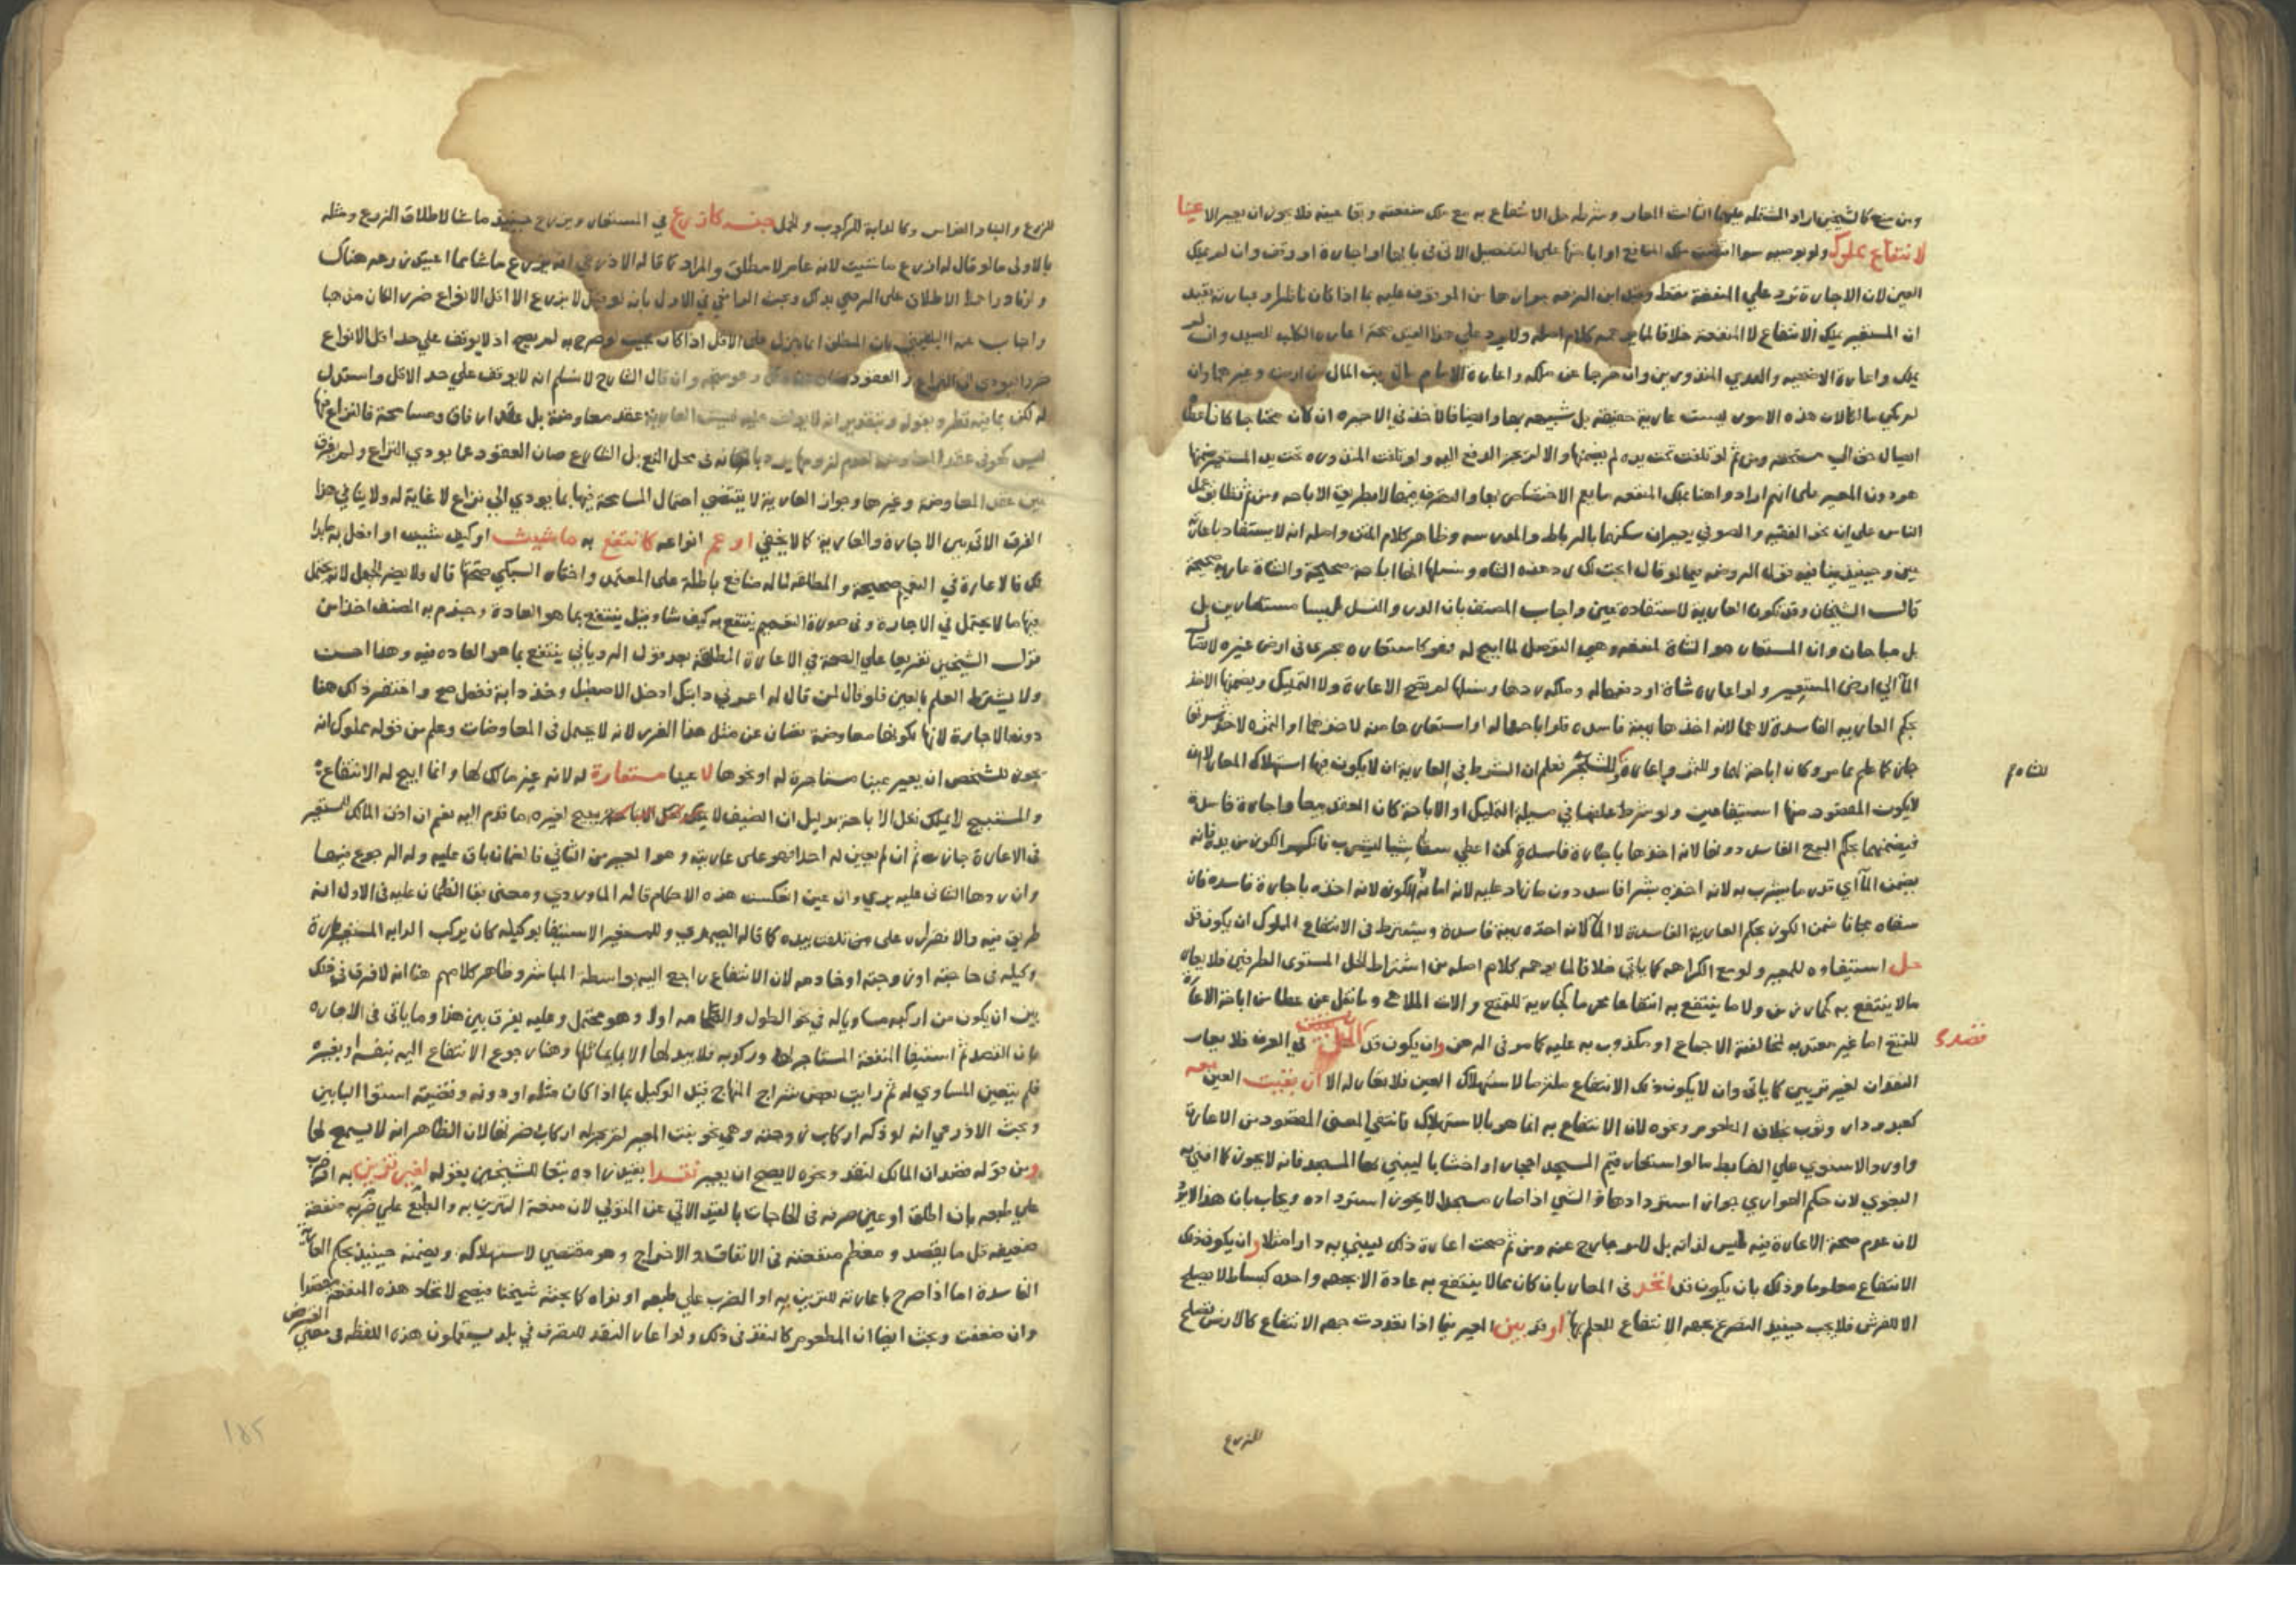 ومن منع كالشيخين اراد المشتمله عليها الثالث المعار وشرطه حل الانتفاع به مع ملك منفعته وبقا عينه فلا يجوز ان يعير الا عينا
لانتفاع بمملوك ولو بوصيه سوا ملك المنافع او اباحتها على التفصيل الاتي في بابها او اجارة او وقف وان لم يملك
العين لان الاجارة ترد علي المنفعة فقط وقيد ابن الرفعه جوازها من الموقوف عليه بما اذا كان ناظرا
ان المستعير يملك الانتفاع لا المنفعة خلافا لما يوهمه كلام اصله ولا يرد علي هذا العين صحة اعارة الكلب للصيد وان لم
يملك واعارة الاضحيه والهدي المنذورين وان خرجا عن ملكه واعارة الامام مال بيت المال من ارض وغيرها وان
لم يملك لان هذه الامور ليست عارية حقيقة بل شبيهه بها وايضا فالاخذ في الاخيره ان كان محتاجا كان اعطا
ايصال حق الي مستحقه ومن ثم لو تلفت تحت يده لم يضمنها والا لم يجز الدفع اليه ولو تلفت المنذوره تحت يد المستعير ضمنها
هو دون المعير على انهم ارادوا هنا بملك المنفعه ما يعم الاختصاص بها والتصرف فيها لا بطريق الاباحه ومن ثم تطابق عمل
الناس على ان نحو الفقيه والصوفي يعيران سكنهما بالرباط والمدرسه وظاهر كلام المتن واصله انه لا يستفاد باعارة
عين وحينئذ ينافيه قول الروضه فيما لو قال ابحت لك در هذه الشاه ونسلها انها اباحة صحيحة والشاة عارية صحيحة
قالـ الشيخان وقد تكون العارية لاستفاده عين واجاب المصنف بان الدر والنسل ليسا مستعارين بل
بل مباحان وانما المستعار هو الشاة لمنفعه وهي التوصل لما ابيح له فهو كاستعاره مجرى في ارض غيره لايصال
المآ الي ارض المستعير ولو اعاره شاة او دفعها له وملكه درها ونسلها لم يصح الاعارة ولا التمليك ويضمنها الاخذ
بحكم العاريه الفاسدة لا هما لانه اخذهما بهبة فاسده فلو اباحهما له او استعارها منه لاخذهما او الشجره لاخذ ثمرتها
جاز كما علم مما مر وكان اباحة لهما وللثمر واعارة للشجر فعلم ان الشرط في العارية ان لا يكون فيها استهلاك المعار لا ان
لا يكون المقصود منها استيفا عين ولو شرط علفها في مسيلة التمليك او الاباحة كان العقد بيعا واجارة فاسدة
فيضمنهما بحكم البيع الفاسد دونها لانه اخذها باجارة فاسدة كمن اعطي سقا شيا ليشرب فانكسر الكوز من يده فانه
يضمن المآ اي قدر ما يشرب به لانه اخذه بشرا فاسد دون ما زاد عليه لانه امانة والكوز لانه اخذه باجارة فاسده فان
سقاه مجانا ضمن الكوز بحكم العاريه الفاسدة لا المآ لانه اخذه بهبة فاسدة ويشترط في الانتفاع المملوك ان يكون قد
حل استيفاوه للمعير ولو مع الكراهه كما ياتي خلافا لما يوهمه كلام اصله من اشتراط الحل المستوي الطرفين فلا يعار
مالا ينتفع به كحمار زمن ولا ما ينتفع به انتفاعا محرما كجارية للتمتع والات الملاهي وما نقل عن عطا من اباحة الاعارة
للتمتع اما غير معتد به لمخالفته الاجماع او مكذوب به عليه كما مر في الرهن وان يكون قد قصد في العرف فلا يعار
النقدان لغير تزيين كما ياتي وان لا يكون ذلك الانتفاع ملزما لاستهلاك العين فلا يعار له الا ان بقيت العين معه
كعبد ودار وثوب بخلاف المطعوم ونحوه لان الانتفاع به انما هو بالاستهلاك فانتفي المعني المقصود من الاعارة
واورد الاسنوي علي الضابط ما لو استعار قيم المسجد احجار او اخشابا ليبني بها المسجد فانه لا يجوز كما افتي به
البغوي لان حكم العواري جواز استردادها والشي اذا صار مسجدا لا يجوز استرداده ويجاب بان هذا لا يرد
لان عدم صحة الاعارة فيه ليس لذاته بل لامر خارج عنه ومن ثم صحت اعارة ذلك ليبني به دارا مثلا وان يكون ذلك
الانتفاع معلوما وذلك بان يكون قد اتحد في المعار بان كان مما لا ينتفع به عادة الا بجهه واحده كبساط لا يصلح
الا للفرش فلا يجب حينئذ التصريح بجهه الانتفاع للعلم بها او قد بين المعير فيما اذا تعددت جهه الانتفاع كالارض تصلح
للشاه م
قصده
للزرع
للزرع والبنا والغراس وكالدابة للركوب والحمل جنسه كازرع في المستعار ويزرع حينئذ ما شا لاطلاق الزرع ومثله
بالاولى ما لو قال له ازرع ما شيت لانه عام لا مطلق والمراد كما قاله الاذرعي انه يزرع ما شا مما اعتيد زرعه هناك
ولو نادرا حملا للاطلاق على الرضي بذلك وبحث الرافعي في الاول بانه لو قيل لا يزرع الا اقل الانواع ضررا لكان مذهبا
واجاب عنه البلقيني بان المطلق انما ينزل على الاقل اذا كان بحيث لو صرح به لم يصح اذ لا يوقف علي حد اقل الانواع
ضررا فيودي الى النزاع والعقود تصان عن ذلك وهو متجه وان قال الشارح لا نسلم انه لا يوقف على حد الاقل واستدل
له لكن بما فيه نظر وبقوله وبتقدير انه لا يوقف عليه فليست العارية عقد معاوضة بل عقد ارفاق ومسامحة فالنزاع فيها
ليس كهو في عقد المعاوضه لعدم لزومها يرد بانه في محل المنع بل الشارع صان العقود عما يودي الى النزاع ولم يفرق
بين عقد المعاوضه وغيرها وجواز العارية لا يقتضي احتمال المسامحة فيها بما يودي الي نزاع لا غاية له ولا ينافي هذا
الفرق الاتي بين الاجارة والعارية كما لا يخفي او عم انواعه كانتفع به ما شيت او كيف شيت او افعل به ما بدا
لك فالاعارة في التعميم صحيحة والمطلقه لما له منافع باطلة على المعتمد واختار السبكي صحتها قال ولا يضر الجهل لانه يحتمل
فيها ما لا يحتمل في الاجارة وفي صورة التعميم ينتفع به كيف شا وقيل ينتفع بما هو العادة وجزم به المصنف اخذا من
قول الشيخين تفريعا علي الصحة في الاعارة المطلقة بعد قول الروياني ينتفع بما هو العاده فيه وهذا احسن
ولا يشترط العلم بالعين فلو قال لمن قال له اعرني دابتك ادخل الاصطبل وخذ دابة ففعل صح واغتفر ذلك هنا
دون الاجارة لانها لكونها معاوضة تصان عن مثل هذا الغرر لانه لا يحتمل في المعاوضات وعلم من قوله بمملوك انه
يجوز للشخص ان يعير عينا مستاجرة له او نحوها لا عينا مستعارة له لانه غير مالك لها وانما ابيح له الانتفاع
والمستبيح لا يملك نقل الاباحة بدليل ان الضيف لا يبيح لغيره ما قدم اليه نعم ان اذن المالك للمستعير
في الاعارة جازت ثم ان لم يعين له احدا فهو على عاريته وهو المعير من الثاني فالضمان باق عليه وله الرجوع فيها
وان ردها الثاني عليه بري وان عين انعكست هذه الاحكام قاله الماوردي ومعنى بقا الضمان عليه في الاول انه
طريق فيه والا فقرار على من تلفت بيده كما قاله الصيمري وللمستعير الاستيفا بوكيله كان يركب الدابه المستعارة
وكيله في حاجته او زوجته او خادمه لان الانتفاع راجع اليه بواسطة المباشر وظاهر كلامهم هنا انه لا فرق في ذلك
بين ان يكون من اركبه مساويا له في نحو الطول والضخامه اولا وهو محتمل وعليه يفرق بين هذا وما ياتي في الاجاره
بان القصد ثم استيفا المنفعة المستاجر لها وركوبه فلا يبدلها الا بما يماثلها وهنا رجوع الانتفاع اليه بنفسه او بغيره
فلم يتعين المساوي له ثم رايت بعض شراح المنهاج قيد الوكيل بما اذا كان مثله او دونه وقضيته استوا البابين
وبحث الاذرعي انه لو ذكر اركاب زوجته وهي نحو بنت المعير لم يجز له اركاب ضرتها لان الظاهر انه لا يسمح لها
ومن قوله قصد ان المالك لنقد ونحوه لا يصح ان يعير نقدا بقيد زاده تبعا للشيخين بقوله لغير تزيين به او ضرب
علي طبعه بان اطلق او عين صرفه في الحاجات بالقيد الاتي عن المتولي لان منفعة التزين به والطبع علي ضربه منفعة
ضعيفه قل ما يقصد ومعظم منفعته في الانفاق والاخراج وهو مقتضي لاستهلاكه ويضمنه حينئذ بحكم العارية
الفاسدة اما اذا صرح باعارته للتزين به او الضرب علي طبعه او نواه كما بحثه شيخنا فيصح لاتخاذ هذه المنفعة مقصدا
وان ضعفت وبحث ايضا ان المطعوم كالنقد في ذلك ولو اعار النقد للتصرف في بلد يستعملون هذه اللفظه في معني القرض
١٥٢